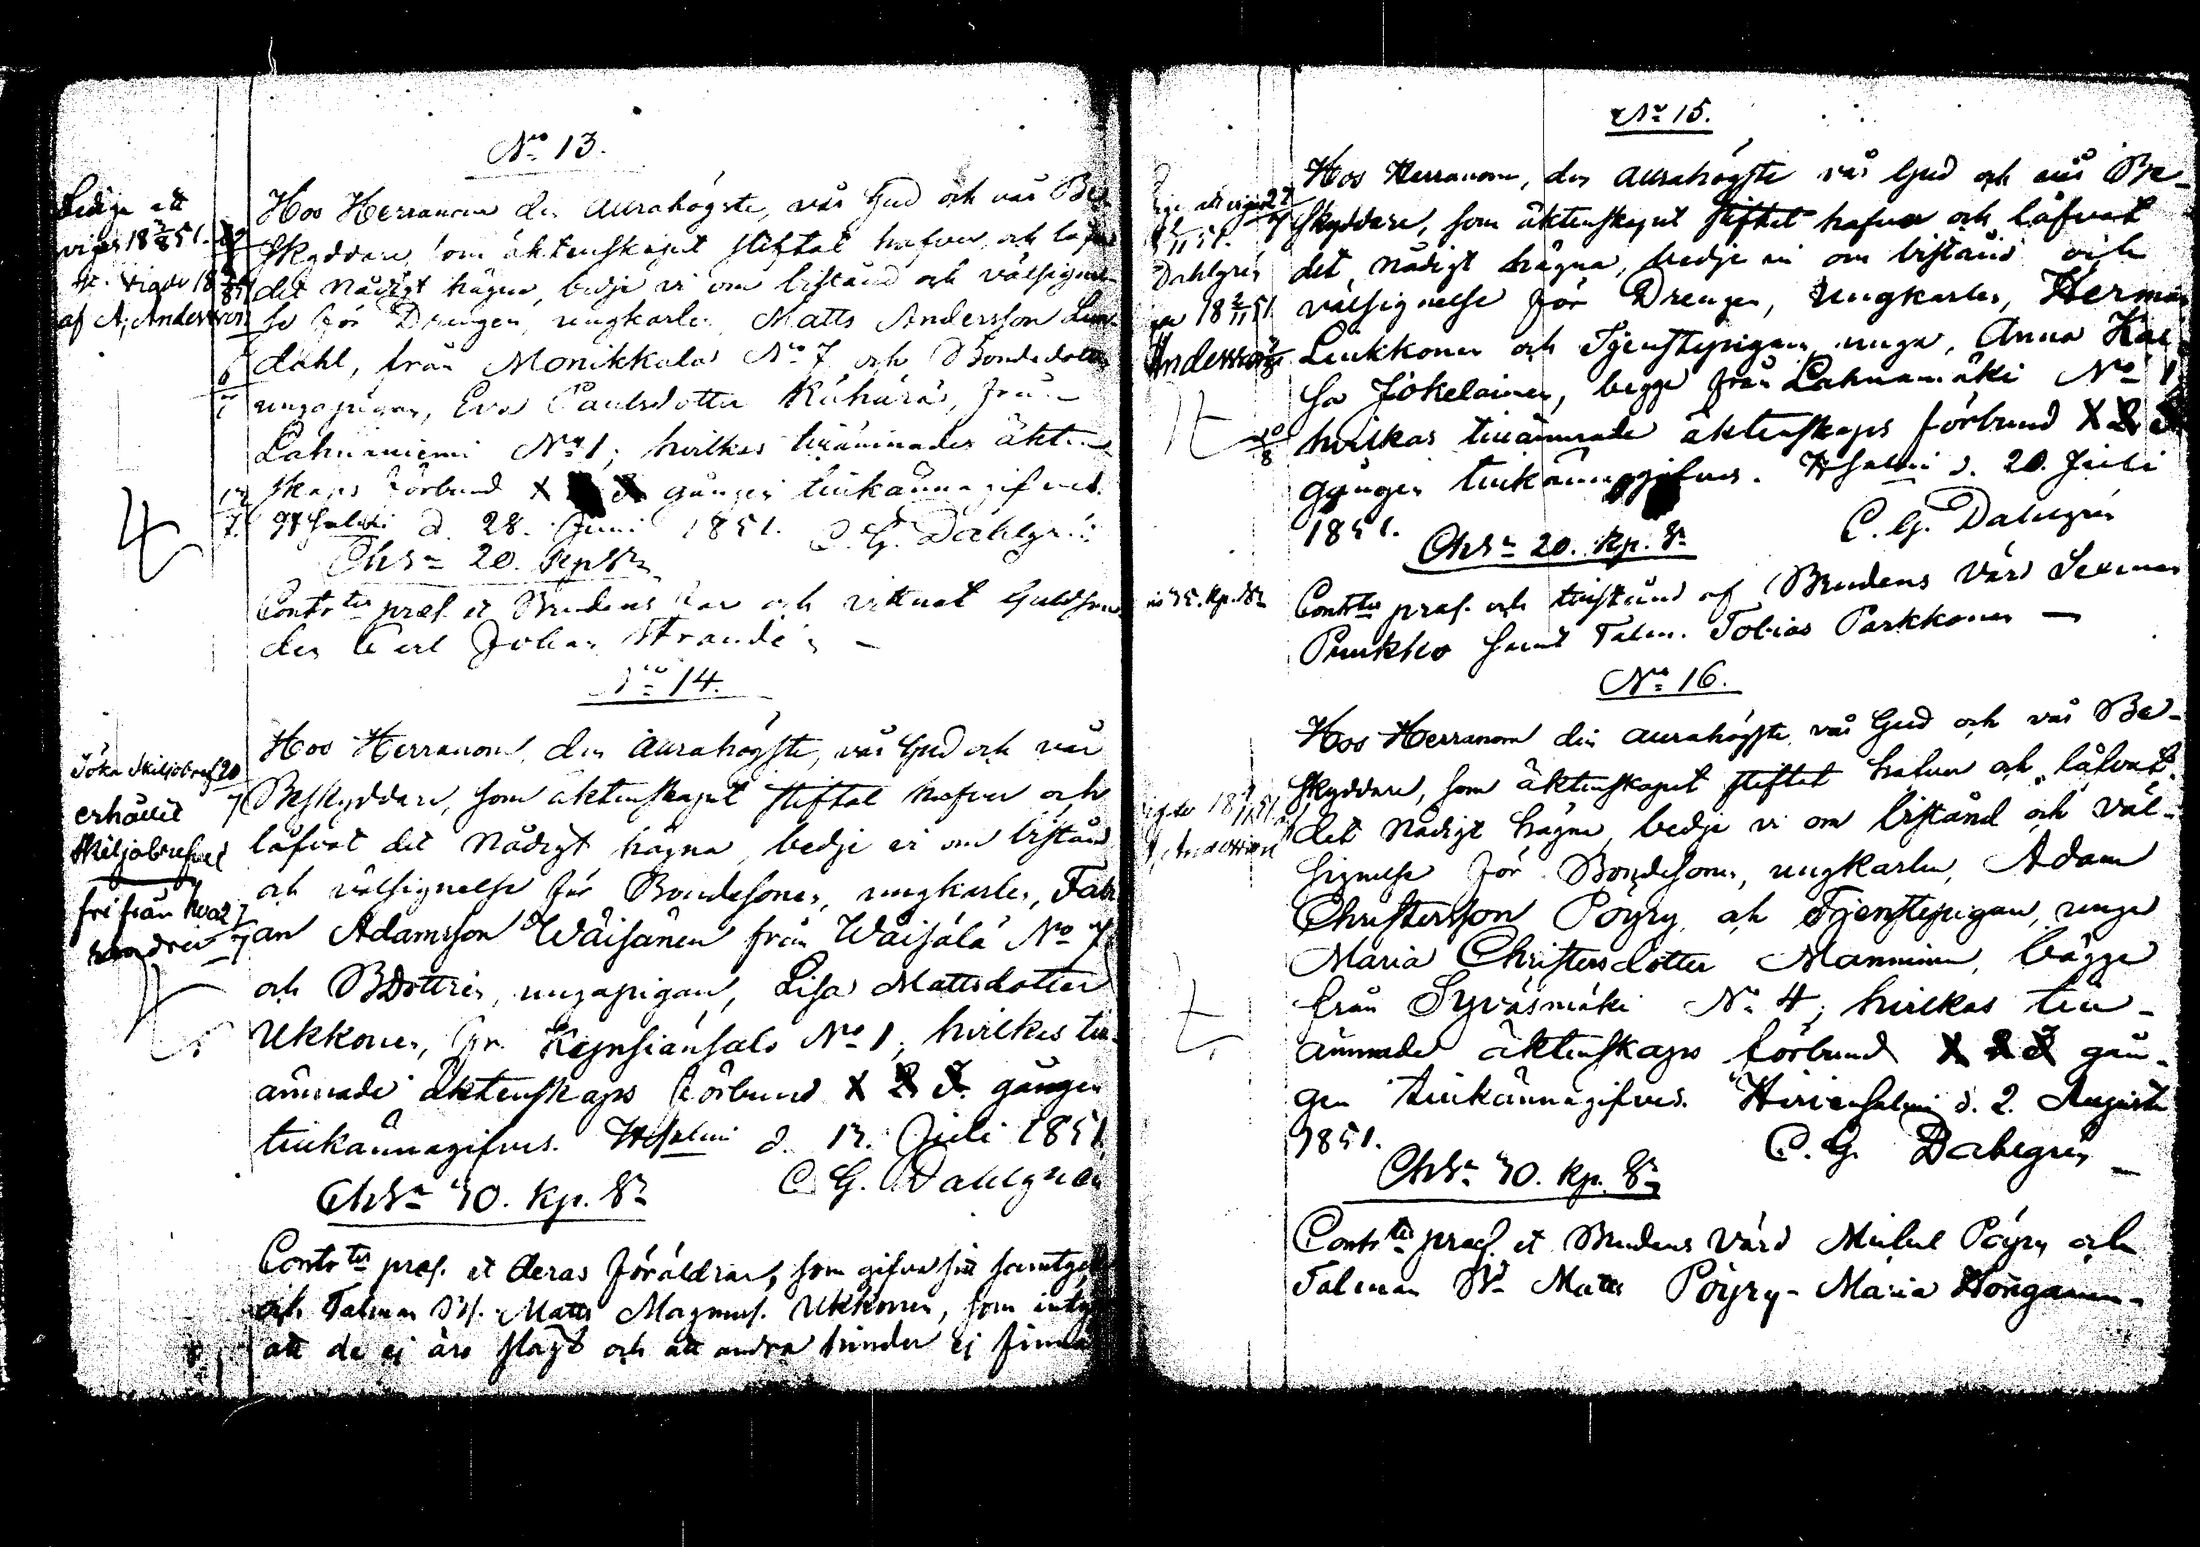 No 13.
Ledige att
vigas 18 2/8 51.
st. vigde 18
af A. Andersson
Hos Herranom den aurahögste, vår Gud och vår Be-
skyddare, som äktenskapet stiftat hafver och låfvat
det nådigt hägna, bedje vi om bistånd och välsignel-
se för Drengen, ungkarlen Matts Andersson Lun-
dahl, från Monikkala No 7 och Bondedottren
unga pigan, Eva Paulsdotter Räihärä, från
Lahnaniemi No 1; hvilkas tillämnade äkten-
skaps förbund 1 2 3 gången tillkännagifves.
Hsalmi d. 28. Juni 1851. C. G. Dahlgrén
Chsn 20. kp. Sr
Contrtes præs. et Brudens Far och vittnet Guldsme-
den Carl Johan Strandén –
No 14.
Söka skiljobref 20/7
erhållit
skiljobrefvet
fri från hvar-
andra
27/7
Hos Herranom, den aurahögste, vår Gud och vår
Beskyddare, som äktenskapet stiftat hafver och
låfvat det nådigt hägna, bedje vi om bistånd
och välsignelse för Bondesonen, ungkarlen, Fabi-
an Adamsson Wäisänen från Wäisälä No 7
och BDottren, ungapigan, Lisa Mattsdotter
Ukkonen, fr. No 1, hvilkas till-
ämnade äktenskaps förbund 1 2 3. gången
tillkännagifves. Hsalmi d. 13. Juli 1851.
C. G. Dahlgrén
Chsn 30. kp. Sr
Contrtes præs. et deras föräldrar, som gifva sitt samtycke
och Talman Matts Magnuss. Ukkonen, som intyga
att de ej äro skylt och att andra hinder ej finnas
No 15.
att vigas 27/7
Dahlgrén
18 2/11 51
Andersson
10/8
Hos Herranom, den aurahögste vår Gud och vår Be-
skyddare, som äktenskapet stiftat hafver och låfvat
det nådigt hägna, bedje vi om bistånd och
välsignelse för Drengen, Ungkarlen, Herman
Leukkonen och Tjenstepigan, unga, Anna Kai-
sa Jokelainen, begge från Lahnamäki No 1,
hvilkas tillämnade äktenskaps förbund 1 2 3
gången tillkännagifves. Hsalmi d. 20. Juli
1851. C. G. Dahlgrén
Chsn 20. kp. Sr
35. kp. Sr
Contrtes præs. och tillstånd af Brudens Värd
Puukko samt Talm. Tobias Parkkonen –
No 16.
vigde 18 51
A. Andersson
Hos Herranom den aurahögste, vår Gud och vår Be-
skyddare, som äktenskapet stiftat hafver och låfvat
det nådigt hägna, bedje vi om bistånd och väl-
signelse för Bondesonen, ungkarlen, Adam
Christersson Pöyry och Tjenstepigan, unga
Maria Christersdotter Manninen, bägge
från Syväsmäki No 4; hvilkas till-
ämnade äktenskaps förbund 1 2 3 gån-
gen tillkännagifves. Hirvensalmi d. 2. Augusti
1851. C. G. Dahlgrén –
Chsn 30. kp. Sr
Contrtes præs. et Brudens Värd Mikel Pöyry och
Talman Matts Pöyry – Maria